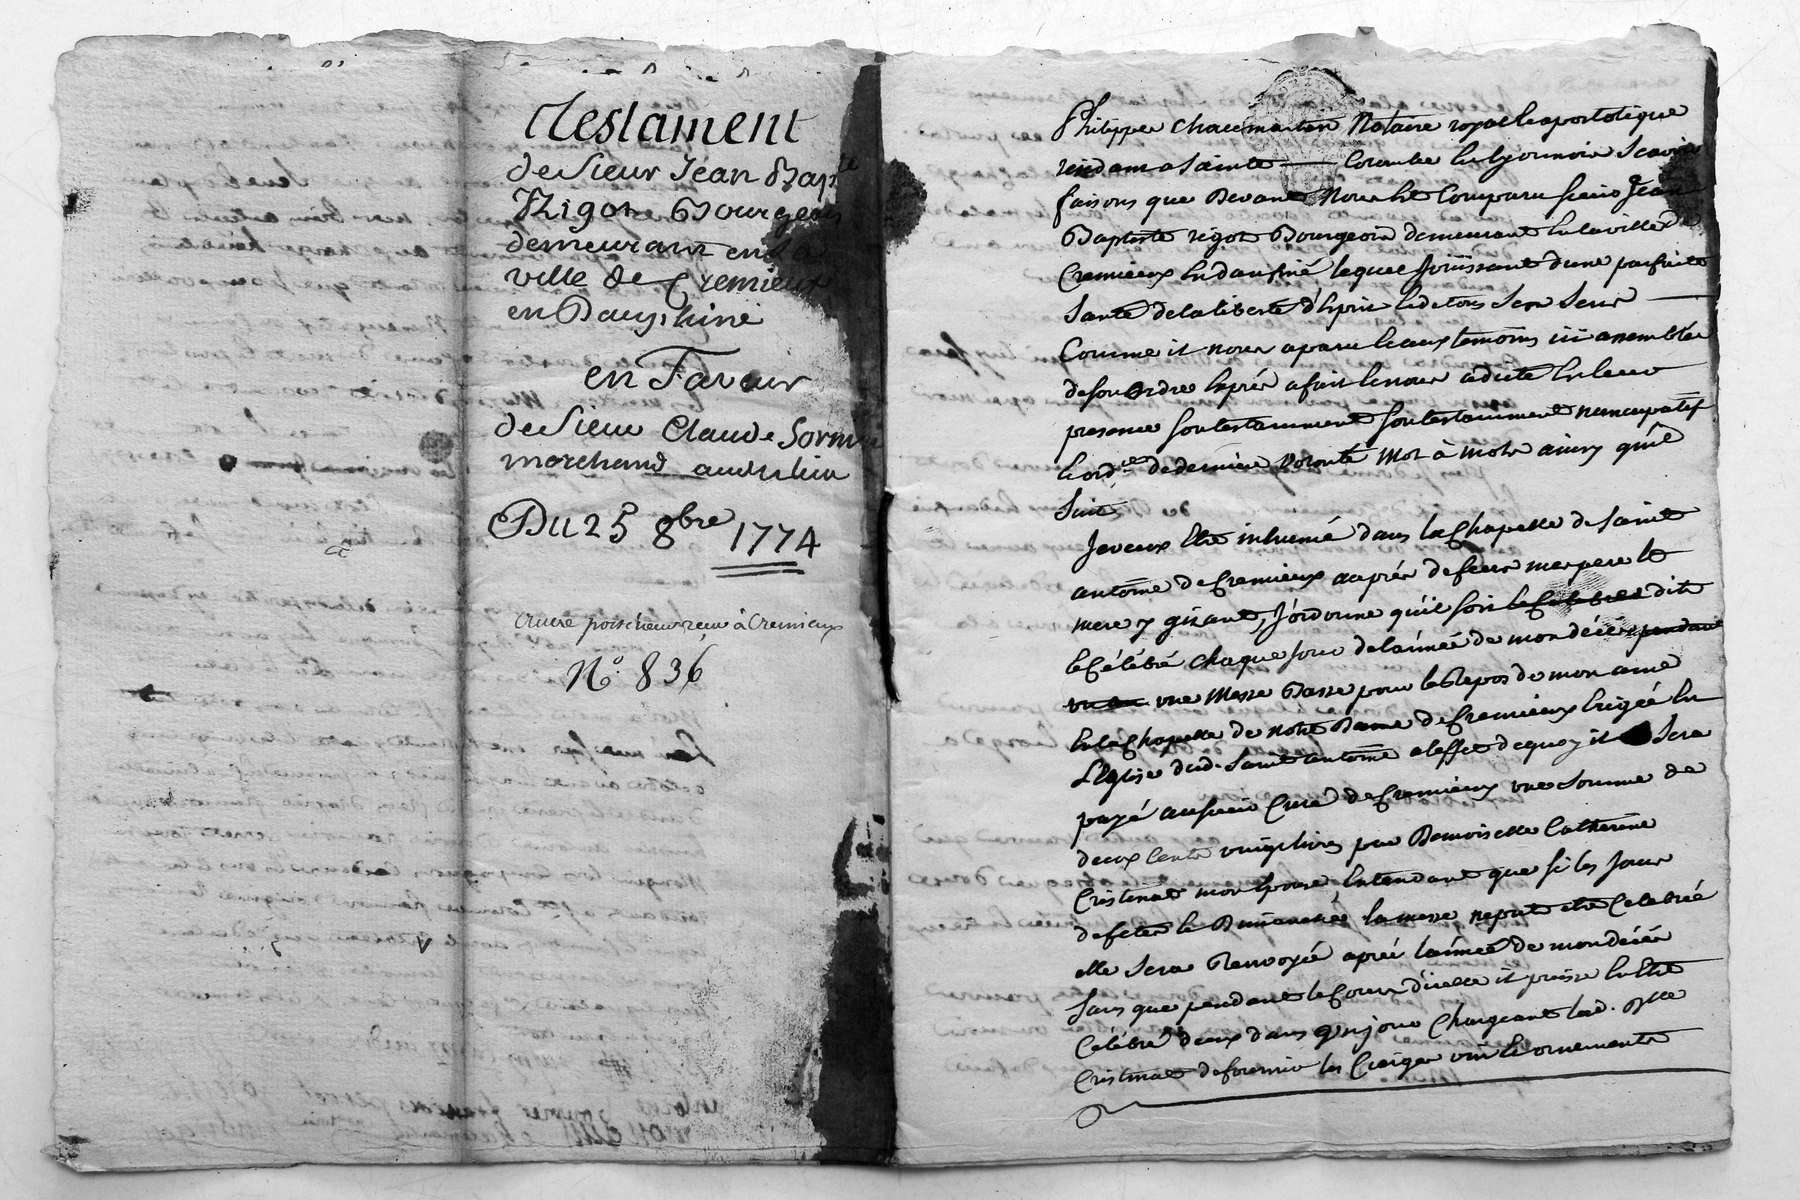 Testament
de Sieur Jean Bapte
Rigot Bourgeois
demeurant en la
ville de Cremieux
en Dauphiné
en Faveur
de Sieur Claude
marchand audit lieu
Du 25 8bre 1774
à Cremieux
N° 836
Philippe Chaumartin Notaire royal & apostolique
résidant a Sainte Colombe En lyonnois Scavoir
faisons que Devant Nous Est Comparu sieur Jean
Baptiste rigot Bourgeois demeurant En la ville de
Cremieux En daufiné lequel Joüissant dune parfaite
Santé de la liberté d'Esprit & de tous Ses Sens
Comme il nous a paru & aux temoins ici assemblés
de son ordre Exprés a fait & nous a dicté En leur
presence son testament son testament nuncupatif
& ord.ce de derniere volonté Mot à mots ainsy qu'il
Suit
Je veux Etre inhumé dans la Chapelle de Saint
antoine de Cremieux auprés de feus mes pere &
mere y gisants, J'ordonne qu'il soit dit
& Célébré chaque jour de l'année de mon décés pendant
une Messe Basse pour le Repos de mon ame
En la Chapelle de Notre Dame de Cremieux Erigée En
L'Eglise dud. Saint antoine a l'effet de quoy il Sera
payé au sieur Curé de Cremieux une Somme de
deux Cents vingt livres par Demoiselle Catherine
Cristinat mon Epouse Entendant que si les Jours
de fetes & Dimanches la messe ne peut etre Celebrée
elle Sera Renvoyée aprés l'année de mon décés
Sans que pendant le Cours d'icelle il puisse En Etre
Célébré deux dans un jour Chargeant lad. Dlle
Cristinat de fournir les Cierges vin & ornements